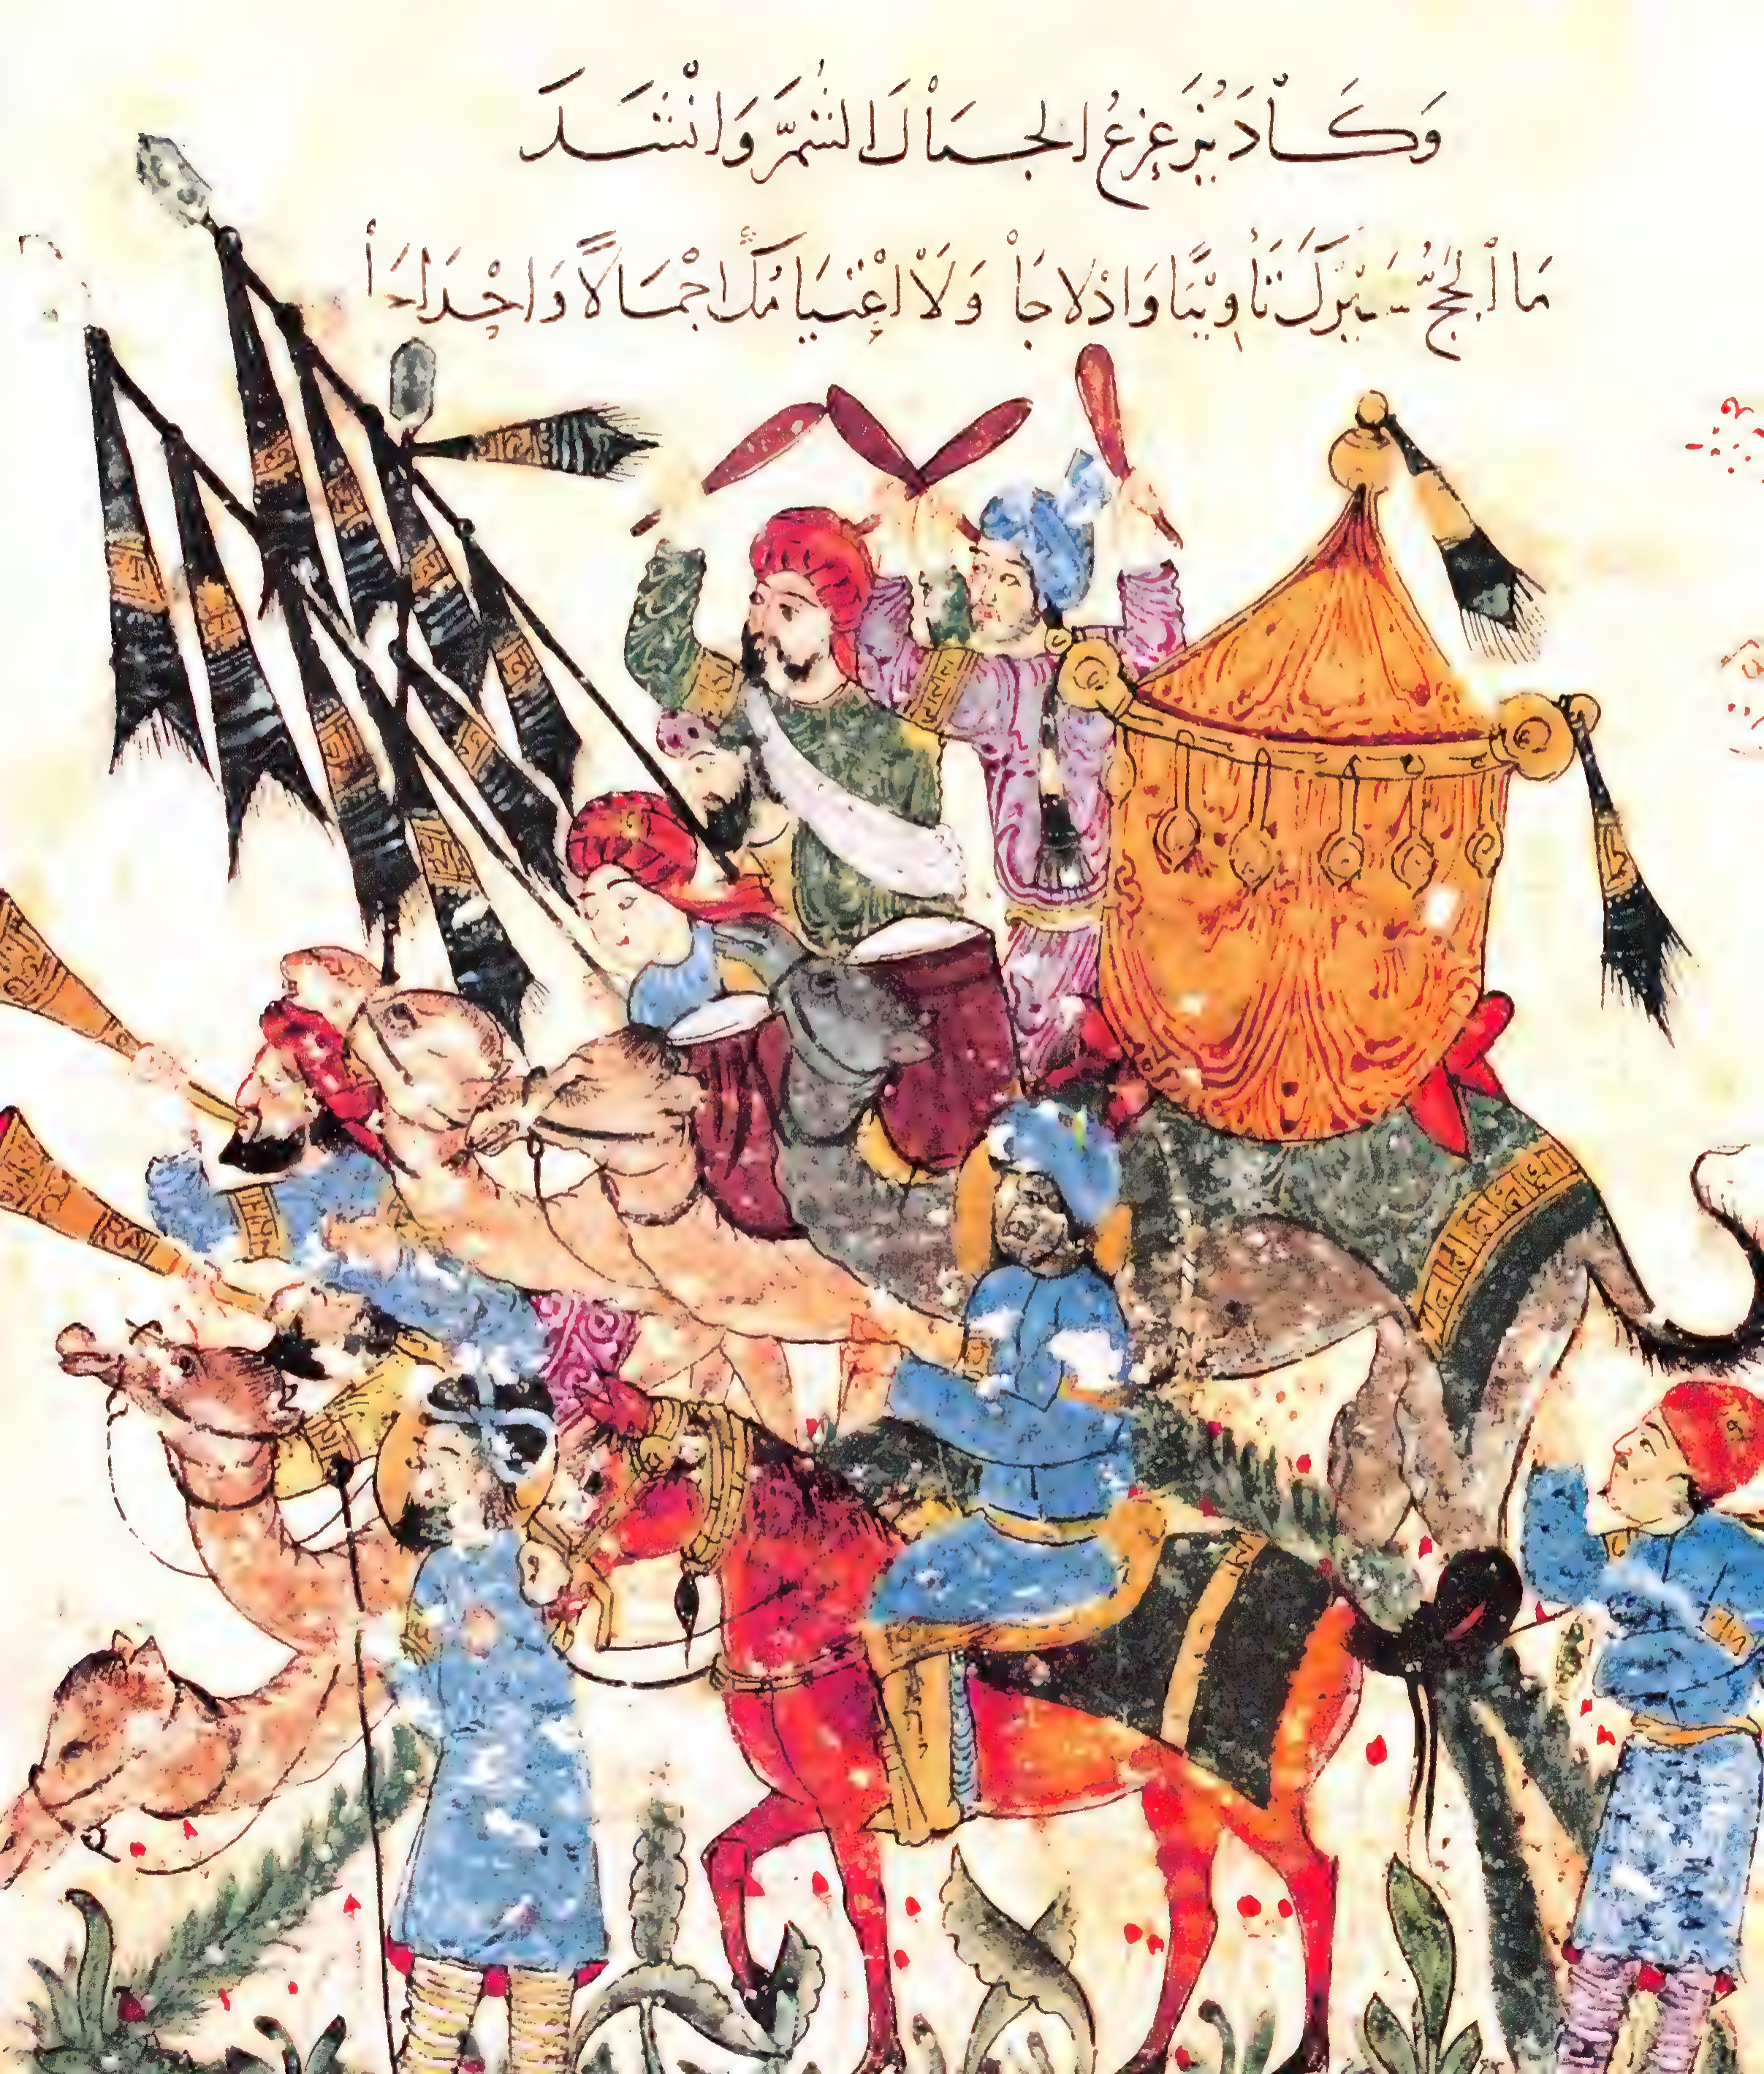 وَكَادَ يُزَعْزِعُ الجِبَالَ الشُّمَّ وَانْشَدَ
مَا الْحَجُّ سَيْرُكَ تَأْوِيبًا وَادْلاجَا وَلَا اعْتِيَامُكَ اجْمَالاً وَاحْدَاجَا